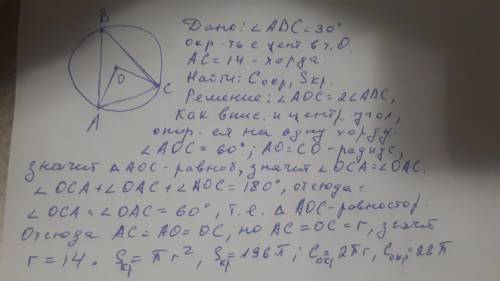 B
O
C
A
Дано: ∠ABC=30°
окр-ть с цент в т.О.
AC=14-хорда.
Найти: Cокр, Sкр.
Решение: ∠AOC=2∠ABC,
как впис. и центр угол,
опир-ся на одну хорду.
∠AOC=60°; AO=CO-радиус,
значит △AOC-равноб, значит ∠OCA=∠OAC.
∠OCA+∠OAC+∠AOC=180°, отсюда:
∠OCA=∠OAC=60°, т.е. △AOC-равностор.
Отсюда AC=AO=OC, но AC=OC=r, значит
r=14. Sкр=πr², Sкр=196π; Cокр=2πr, Cокр=28π